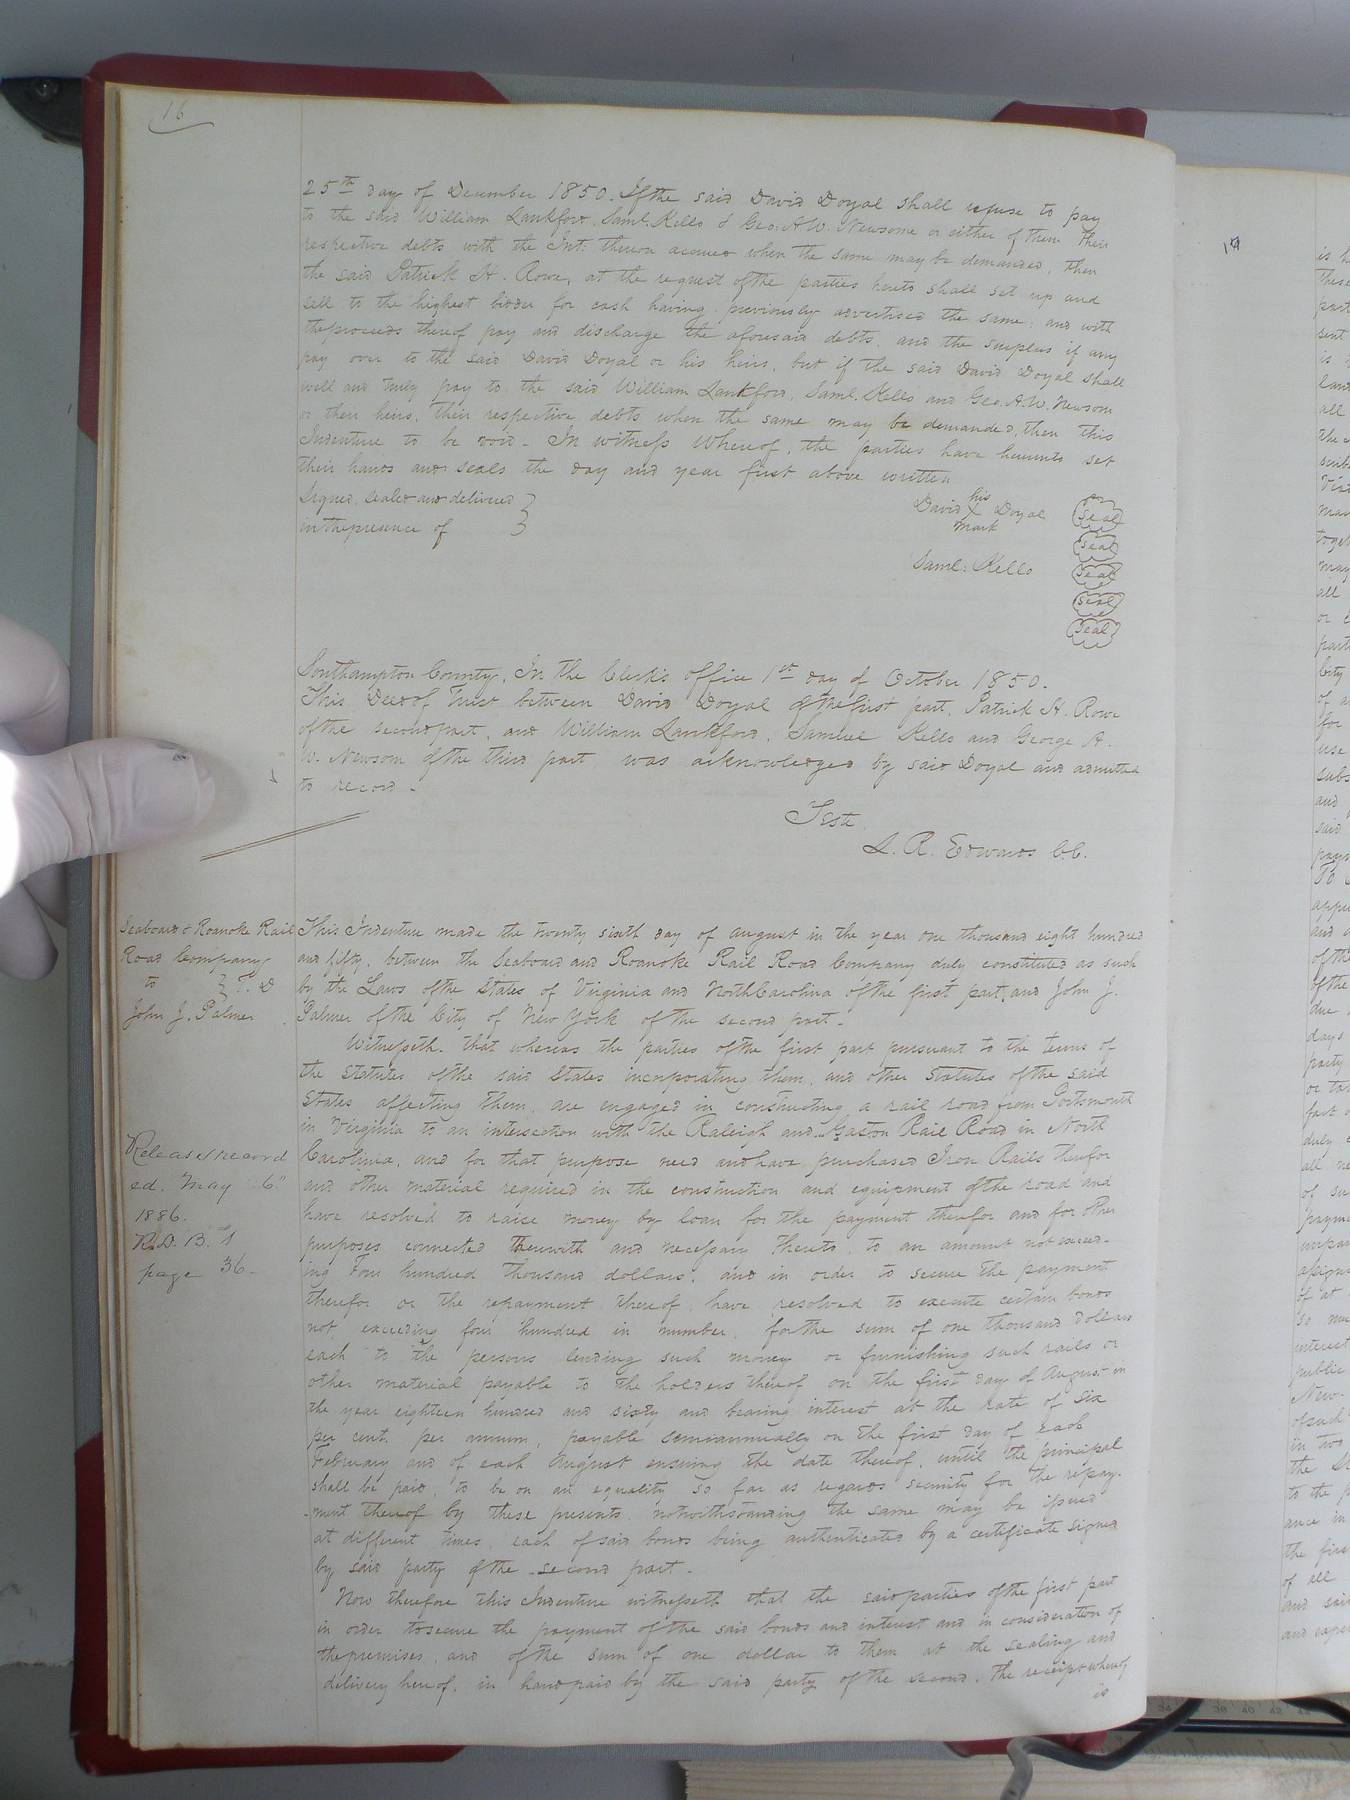 16
25th day of December 1850. If the said David Doyal shall refuse to pay
to the said William Lankford, Saml. Kello & Geo: A. W. Newsome or either of them their
respective debts with the Int: thereon accrued when the same may be demanded, then
the said Patrick H. Rowe, at the request of the parties hereto shall set up and
sell to the highest bidder for cash having previously advertised the same: and with
the proceeds thereof pay and discharge the aforesaid debts, and the surplus if any
pay over to the said David Doyal or his heirs, but if the said David Doyal shall
well and truly pay to the said William Lankford, Saml. Kello and Geo. A. W. Newsom
or their heirs, their respective debts when the same may be demanded, then this
Indenture to be void - In witness Whereof, the parties have hereunto set
their hands and seals the day and year first above written
Signed, sealed and delivered
in the presence of
David his X mark Doyal seal
seal
Saml: Kello seal
seal
seal
Southampton County, In the Clerk's office 1st day of October 1850.
This Deed of Trust between David Doyal of the first part, Patrick H. Rowe
of the second part, and William Lankford, Samuel Kello and George A.
W. Newsom of the third part was acknowledged by said Doyal and admitted
to record -
Teste
L. R. Edwards C.C.
Seaboard & Roanoke Rail
Road Company
to } T. D
John J. Palmer
This Indenture made the twenty sixth day of august in the year one thousand eight hundred
and fifty, between the Seaboard and Roanoke Rail Road Company duly constituted as such
by the Laws of the States of Virginia and North Carolina of the first part, and John J.
Palmer of the City of New York of the second part -
Witnesseth. that whereas the parties of the first part pursuant to the terms of
the Statutes of the said States incorporating them, and other Statutes of the said
States affecting them, are engaged in constructing a rail road from Portsmouth
in Virginia to an intersection with the Raleigh and Gaston Rail Road in North
Carolina, and for that purpose need and have purchased Iron Rails therefor
and other material required in the construction and equipment of the road and
have resolved to raise money by loan for the payment therefor and for other
purposes connected therewith and necessary thereto, to an amount not exceed-
ing Four hundred thousand dollars, and in order to secure the payment
therefor or the repayment thereof, have resolved to execute certain bonds
not exceeding four hundred in number, for the sum of one thousand dollars
each to the persons lending such money or furnishing such rails or
other material payable to the holders thereof on the first day of August in
the year eighteen hundred and sixty and bearing interest at the rate of six
per cent. per annum, payable semiannually on the first day of each
February and of each August ensuing the date thereof, until the principal
shall be paid, to be on an equality so far as regards security for the repay-
-ment thereof by these presents notwithstanding the same may be issued
at different times, each of said bonds being authenticated by a certificate signed
by said party of the second part -
Now therefore this Indenture witnesseth that the said parties of the first part
in order to secure the payment of the said bonds and interest and in consideration of
the premises, and of the sum of one dollar to them at the sealing and
delivery hereof, in hand paid by the said party of the second, the receipt whereof
is
Release record
ed. May 6"
1886.
R.D.B. 1
page 36-